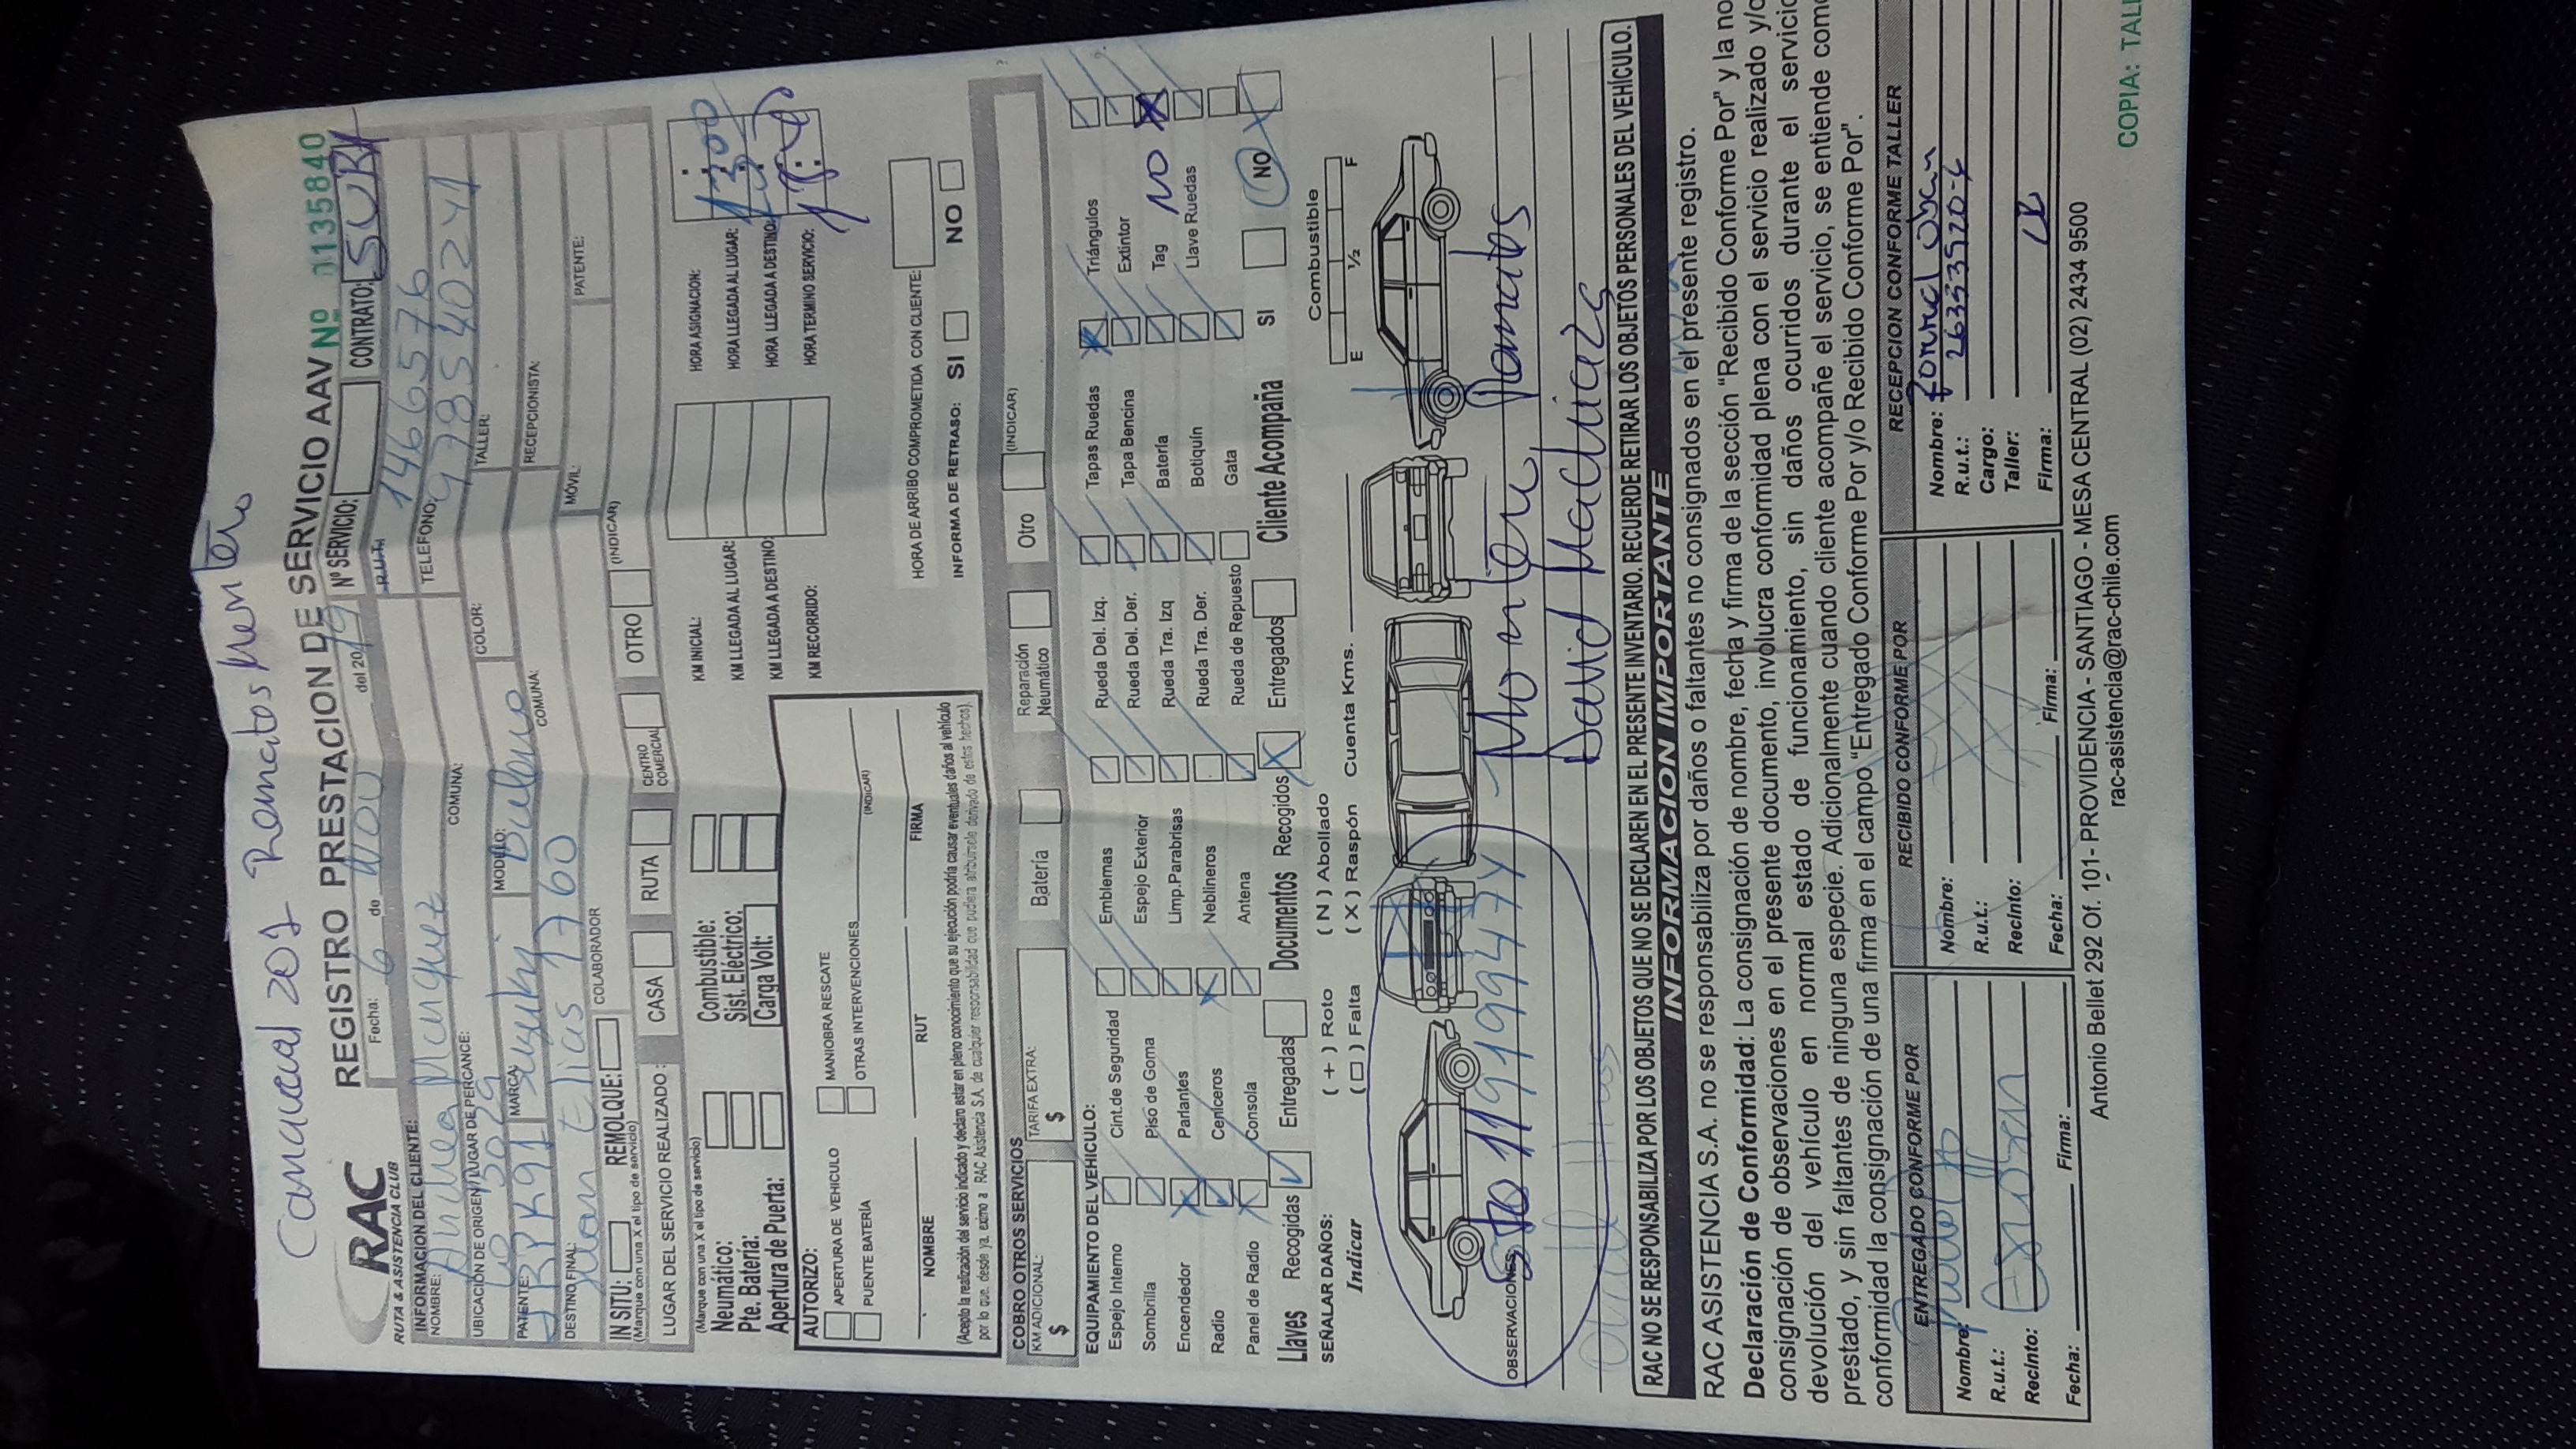 Camaceal 201 Rematos Kren
RAC
RUTA & ASISTENCIA CLUB
REGISTRO PRESTACION DE SERVICIO AAV Nº 01135840
Fecha: 6 de NOV del 2019 Nº SERVICIO: CONTRATO: SURA
INFORMACION DEL CLIENTE:
NOMBRE: Andrea Marquez R.U.T. 146665576
UBICACIÓN DE ORIGEN / LUGAR DE PERCANCE: COMUNA: TELEFONO: 978540241
PATENTE: MARCA: Suzuki MODELO: Baleno COLOR: TALLER:
DESTINO FINAL: San Elias 1760 COMUNA: RECEPCIONISTA:
COLABORADOR MÓVIL: PATENTE:
IN SITU: REMOLQUE:
(Marque con una X el tipo de servicio)
LUGAR DEL SERVICIO REALIZADO: CASA RUTA CENTRO COMERCIAL OTRO (INDICAR)
(Marque con una X el tipo de servicio)
Neumático: Combustible:
Pte. Batería: Sist. Eléctrico:
Apertura de Puerta: Carga Volt:
KM INICIAL: HORA ASIGNACION:
KM LLEGADA AL LUGAR: HORA LLEGADA AL LUGAR: 1300
KM LLEGADA A DESTINO: HORA LLEGADA A DESTINO:
KM RECORRIDO: HORA TERMINO SERVICIO:
AUTORIZO:
APERTURA DE VEHICULO MANIOBRA RESCATE
PUENTE BATERÍA OTRAS INTERVENCIONES (INDICAR)
NOMBRE RUT FIRMA
(Acepto la realización del servicio indicado y declaro estar en pleno conocimiento que su ejecución podría causar eventuales daños al vehículo
por lo que, desde ya, eximo a RAC Asistencia S.A. de cualquier responsabilidad que pudiera atribuírsele derivado de estos hechos).
HORA DE ARRIBO COMPROMETIDA CON CLIENTE:
INFORMA DE RETRASO: SI NO
COBRO OTROS SERVICIOS
KM ADICIONAL: $ TARIFA EXTRA: $ Batería Reparación Neumático Otro (INDICAR)
EQUIPAMIENTO DEL VEHICULO:
Espejo Interno Cint.de Seguridad Emblemas Rueda Del. Izq. Tapas Ruedas Triángulos
Sombrilla Piso de Goma Espejo Exterior Rueda Del. Der. Tapa Bencina Extintor
Encendedor Parlantes Limp.Parabrisas Rueda Tra. Izq Batería Tag NO
Radio Ceniceros Neblineros Rueda Tra. Der. Botiquín Llave Ruedas
Panel de Radio Consola Antena Rueda de Repuesto Gata
Llaves Recogidas Entregadas Documentos Recogidos Entregados Cliente Acompaña SI NO
SEÑALAR DAÑOS: ( + ) Roto ( N ) Abollado
Indicar ( □ ) Falta ( X ) Raspón Cuenta Kms. Combustible
E ½ F
OBSERVACIONES: Sto 119199474 Monten Remates
David Maduiazs
RAC NO SE RESPONSABILIZA POR LOS OBJETOS QUE NO SE DECLAREN EN EL PRESENTE INVENTARIO. RECUERDE RETIRAR LOS OBJETOS PERSONALES DEL VEHÍCULO.
INFORMACION IMPORTANTE
RAC ASISTENCIA S.A. no se responsabiliza por daños o faltantes no consignados en el presente registro.
Declaración de Conformidad: La consignación de nombre, fecha y firma de la sección "Recibido Conforme Por" y la no
consignación de observaciones en el presente documento, involucra conformidad plena con el servicio realizado y/o
devolución del vehículo en normal estado de funcionamiento, sin daños ocurridos durante el servicio
prestado, y sin faltantes de ninguna especie. Adicionalmente cuando cliente acompañe el servicio, se entiende como
conformidad la consignación de una firma en el campo "Entregado Conforme Por y/o Recibido Conforme Por".
ENTREGADO CONFORME POR
Nombre:
R.u.t.:
Recinto:
Fecha: Firma:
RECIBIDO CONFORME POR
Nombre:
R.u.t.:
Recinto:
Fecha: Firma:
RECEPCION CONFORME TALLER
Nombre:
R.u.t.: 26335920-6
Cargo:
Taller:
Firma:
Antonio Bellet 292 Of. 101- PROVIDENCIA - SANTIAGO - MESA CENTRAL (02) 2434 9500
rac-asistencia@rac-chile.com
COPIA: TALL